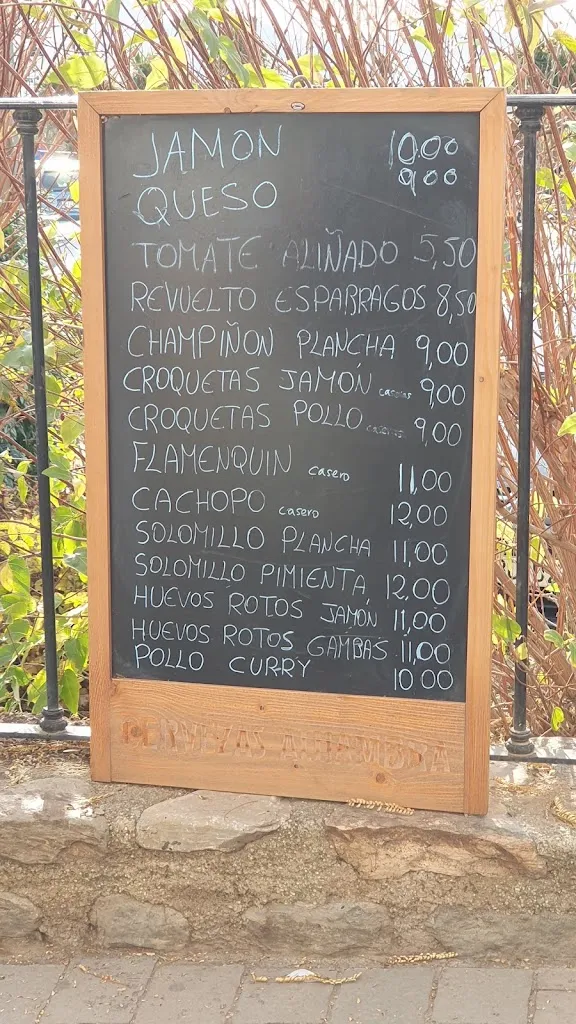 JAMON 10.00
QUESO 9.00
TOMATE ALIÑADO 5,50
REVUELTO ESPARRAGOS 8,50
CHAMPIÑON PLANCHA 9,00
CROQUETAS JAMÓN caseras 9,00
CROQUETAS POLLO caseras 9,00
FLAMENQUIN casero 11,00
CACHOPO casero 12,00
SOLOMILLO PLANCHA 11,00
SOLOMILLO PIMIENTA 12,00
HUEVOS ROTOS JAMÓN 11,00
HUEVOS ROTOS GAMBAS 11,00
POLLO CURRY 10 00
CERVEZAS ALHAMBRA